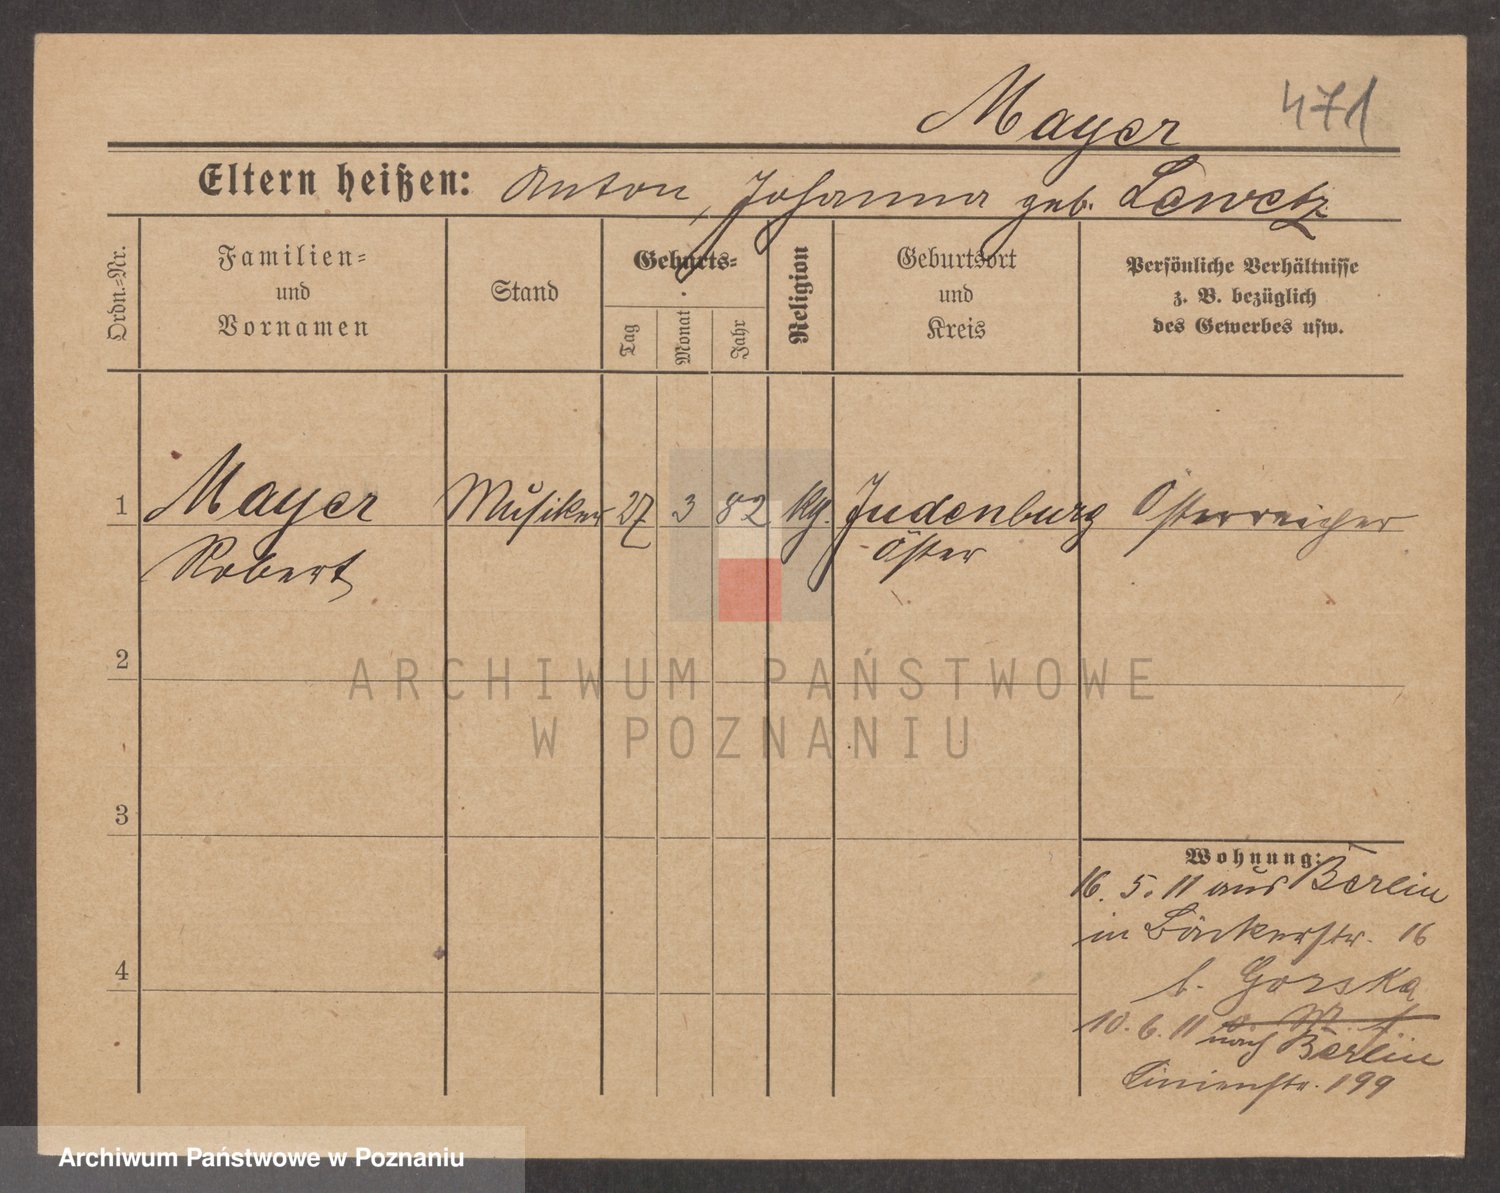 Mayer 471
Eltern heißen: Anton, Johanna geb. Lewetz
Ordn.=Nr.
Familien=
und
Vornamen
Stand
Geburts=
Tag
Monat
Jahr
Religion
Geburtsort
und
Kreis
Persönliche Verhältnisse
z. B. bezüglich
des Gewerbes usw.
1 Mayer Musiker 27 3 82 kg. Judenburg Österreicher
Robert Öster
2
3
4
Wohnung:
16. 5. 11 aus Berlin
in Bäckerstr. 16
b. Gorska
10. 6. 11
nach Berlin
Linienstr. 199
ARCHIWUM PAŃSTWOWE
W POZNANIU
Archiwum Państwowe w Poznaniu